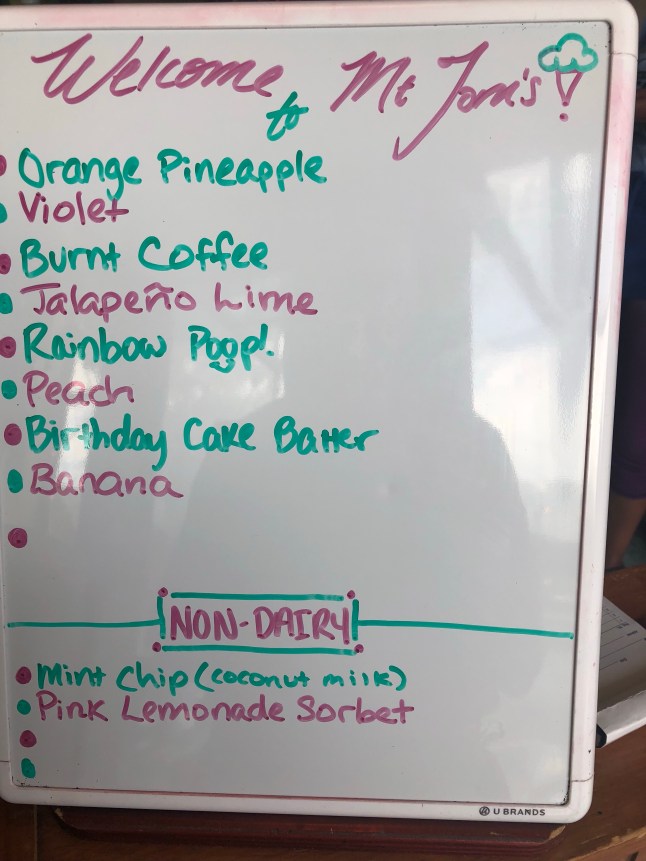 Welcome to Mt Tom's!
Orange Pineapple
Violet
Burnt Coffee
Jalapeño Lime
Rainbow Poop!
Peach
Birthday Cake Batter
Banana
NON-DAIRY
Mint Chip (coconut milk)
Pink Lemonade Sorbet
U BRANDS